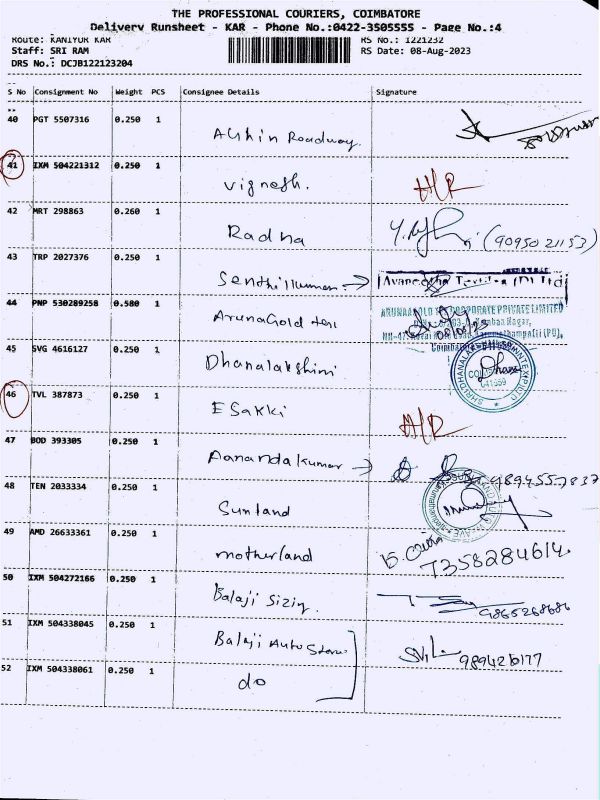 THE PROFESSIONAL COURIERS, COIMBATORE
Delivery Runsheet - KAR - Phone No.:0422-3505555 - Page No.:4
Route: KANIYUR KAR RS No.: 1221232
Staff: SRI RAM RS Date: 08-Aug-2023
DRS No.: DCJB122123204
S No Consignment No Weight PCS Consignee Details Signature
40 PGT 5507316 0.250 1
Roadway.
41 IXM 504221312 0.250 1
Vignesh. H/R
42 MRT 298863 0.260 1
Radha (9095021153)
43 TRP 2027376 0.250 1
Senthilkumar →
44 PNP 530289258 0.580 1
ARUNAAGOLD TEX CORPORATE PRIVATE LIMITED
ArunaGold tex
08/08/23
45 SVG 4616127 0.250 1
Dhanalakshmi
46 TVL 387873 0.250 1
Esakki H/R
47 BOD 393305 0.250 1
Aanandakumar → 9894557837
48 TEN 2033334 0.250 1
Sunland
49 AMD 26633361 0.250 1
motherland 7358284614.
50 IXM 504272166 0.250 1
Balaji Sizing. 9865268686
51 IXM 504338045 0.250 1
Balaji Auto Store
52 IXM 504338061 0.250 1
do